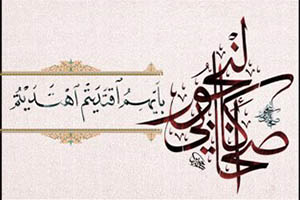 أصحابي كالنجوم
بأيهم اقتديتم اهتديتم